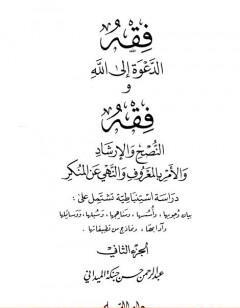 فِقْهُ
الدَّعْوَةِ إِلَى اللَّهِ
وَ
فِقْهُ
النُّصْحِ وَالإِرْشَادِ
وَالأَمْرِ بِالمَعْرُوفِ وَالنَّهْيِ عَنِ المُنْكَرِ
دراسة استنباطية تشتمل على:
بيان وجوبها، وأسسها، ومناهجها، وسبلها، ووسائلها
وآدابها، ونماذج من تطبيقاتها
الجزء الثاني
عبد الرحمن حسن حبنكة الميداني